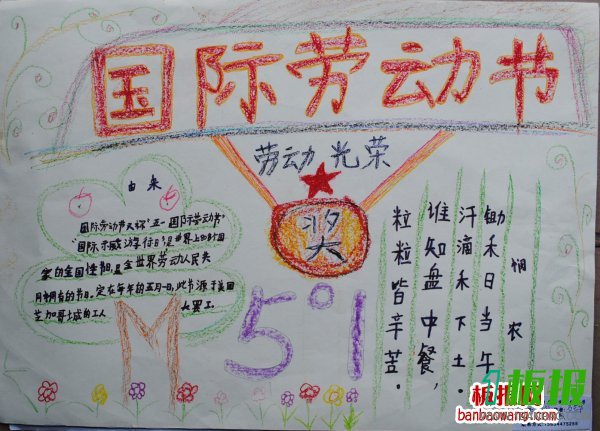 国际劳动节
劳动光荣
奖
由来
国际劳动节又称"五一国际劳动节"
"国际示威游行日"是世界上
家的全国性节日,是全世界劳动人民共
同拥有的节日。定在每年的五月一日,此节源于美国
芝加哥城的工人大罢工
M
5°1
悯农
锄禾日当午
汗滴禾下土。
谁知盘中餐,
粒粒皆辛苦。
板报
板报网
banbaowang.com